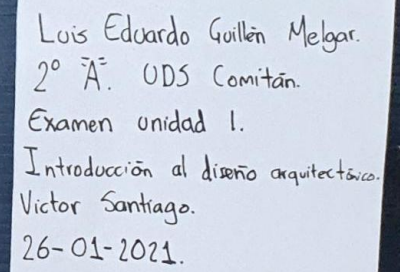 Luis Eduardo Guillén Melgar.
2° "A". UDS Comitán.
Examen unidad 1.
Introducción al diseño arquitectónico.
Victor Santiago.
26-01-2021.